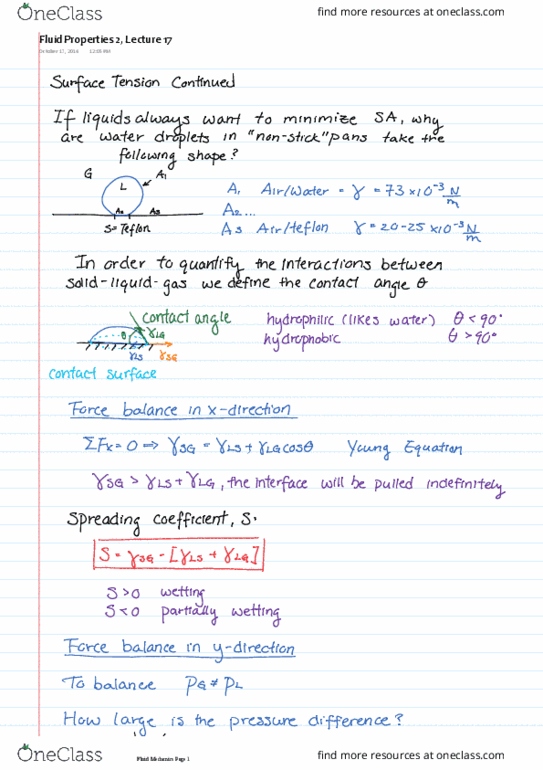 OneClass
find more resources at oneclass.com
Fluid Properties 2, Lecture 17
October 17, 2016 12:05 PM
Surface Tension Continued
If liquids always want to minimize SA, why
are water droplets in "non-stick" pans take the
following shape?
G
L
A₁
A₂ A₃
S= Teflon
A₁ Air/water = γ = 73 ×10⁻³ N/m
A₂...
A₃ Air/teflon γ = 20-25 ×10⁻³ N/m
In order to quantify the interactions between
solid-liquid-gas we define the contact angle θ
contact angle
θ γLG
γLS γSG
contact surface
hydrophilic (likes water) θ < 90°
hydrophobic θ > 90°
Force balance in x-direction
ΣFx = 0 ⟹ γSG = γLS + γLG cosθ Young Equation
γSG > γLS + γLG, the interface will be pulled indefinitely
Spreading coefficient, S.
S = γSG - [γLS + γLG]
S>0 wetting
S<0 partially wetting
Force balance in y-direction
To balance PG ≠ PL
How large is the pressure difference?
Fluid Mechanics Page 1
OneClass
find more resources at oneclass.com